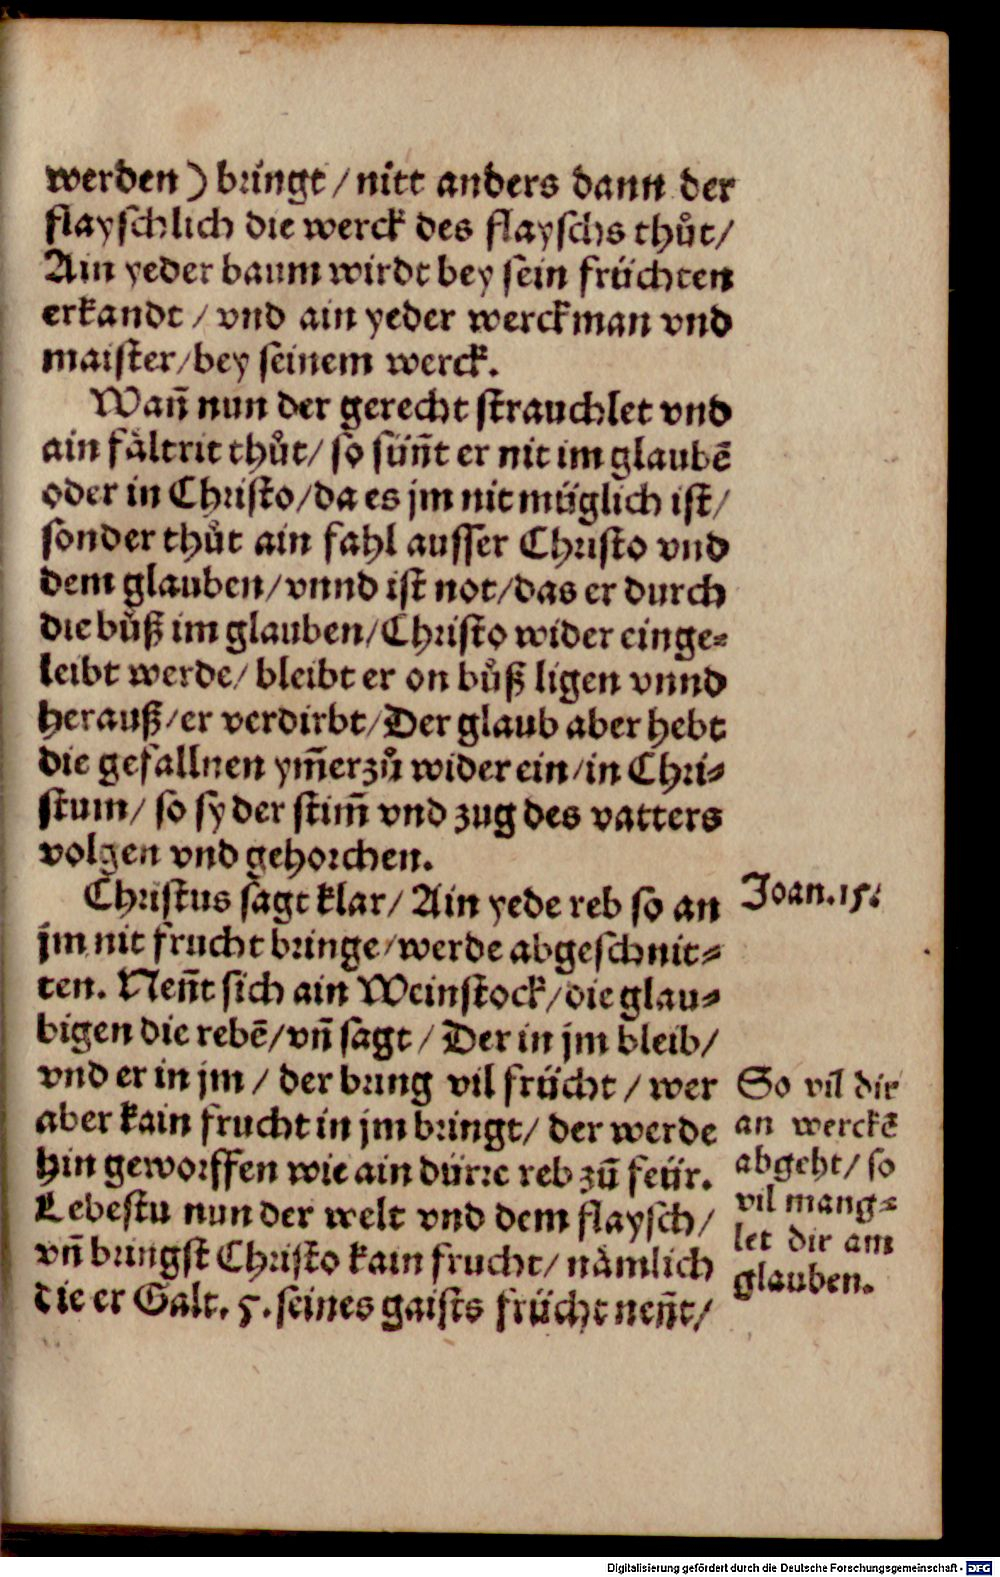 werden) bringt / nitt anders dann der
flayschlich die werck des flayschs thůt/
Ain yeder baum wirdt bey sein früchten
erkandt / vnd ain yeder werckman vnd
maister/bey seinem werck.
Wañ nun der gerecht strauchlet vnd
ain fältrit thůt/ so sünt er nit im glaubē
oder in Christo/da es jm nit müglich ist/
sonder thůt ain fahl ausser Christo vnd
dem glauben/vnnd ist not/das er durch
die bůß im glauben/Christo wider einge⸗
leibt werde/ bleibt er on bůß ligen vnnd
herauß/er verdirbt/Der glaub aber hebt
die gefallnen ym̃erzů wider ein/in Chri⸗
stum/ so sy der stim̃ vnd zug des vatters
volgen vnd gehorchen.
Christus sagt klar/ Ain yede reb so an
jm nit frucht bringe/werde abgeschnit⸗
ten. Neñt sich ain Weinstock/die glau⸗
bigen die rebē/vñ sagt / Der in jm bleib/
vnd er in jm / der bring vil frücht / wer
aber kain frucht in jm bringt/ der werde
hin geworffen wie ain dürre reb zū feür.
Lebestu nun der welt vnd dem flaysch/
vñ bringst Christo kain frucht/ nämlich
die er Galt. 5. seines gaists frücht neñt/
Joan.15.
So vil dir
an werckē
abgeht/ so
vil mang⸗
let dir am
glauben.
Digitalisierung gefördert durch die Deutsche Forschungsgemeinschaft - DFG